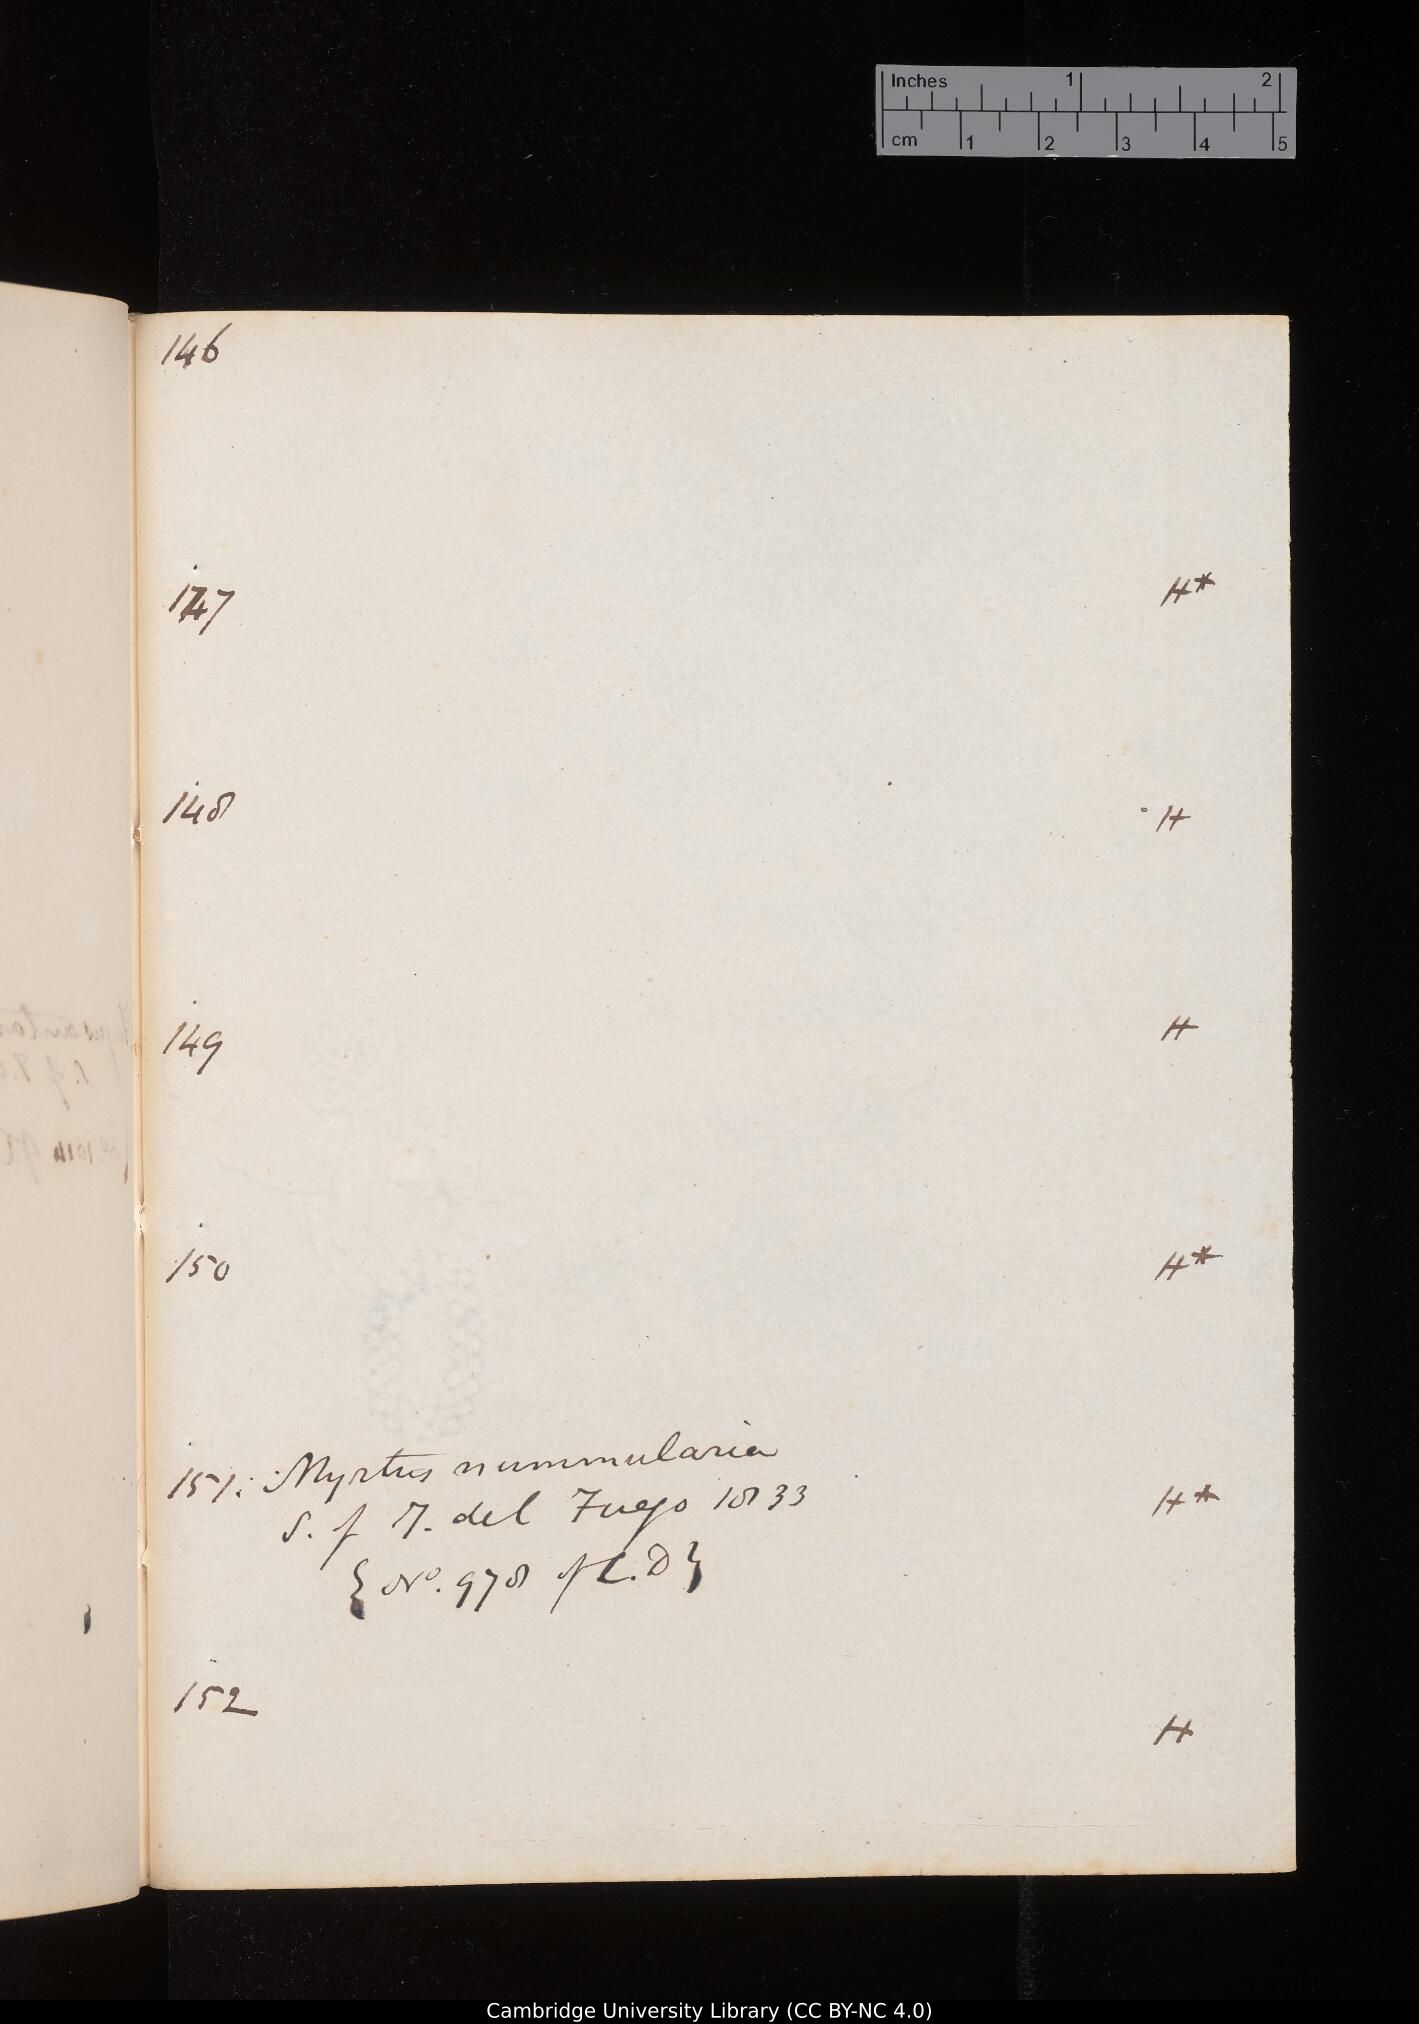 Inches 1 2
cm 1 2 3 4 5
146
147 H*
148 H
149 H
150 H*
151. Myrtus nummularia
S. of T. del Fuego 1833 H*
{No. 978 of C.D}
152 H
Cambridge University Library (CC BY-NC 4.0)